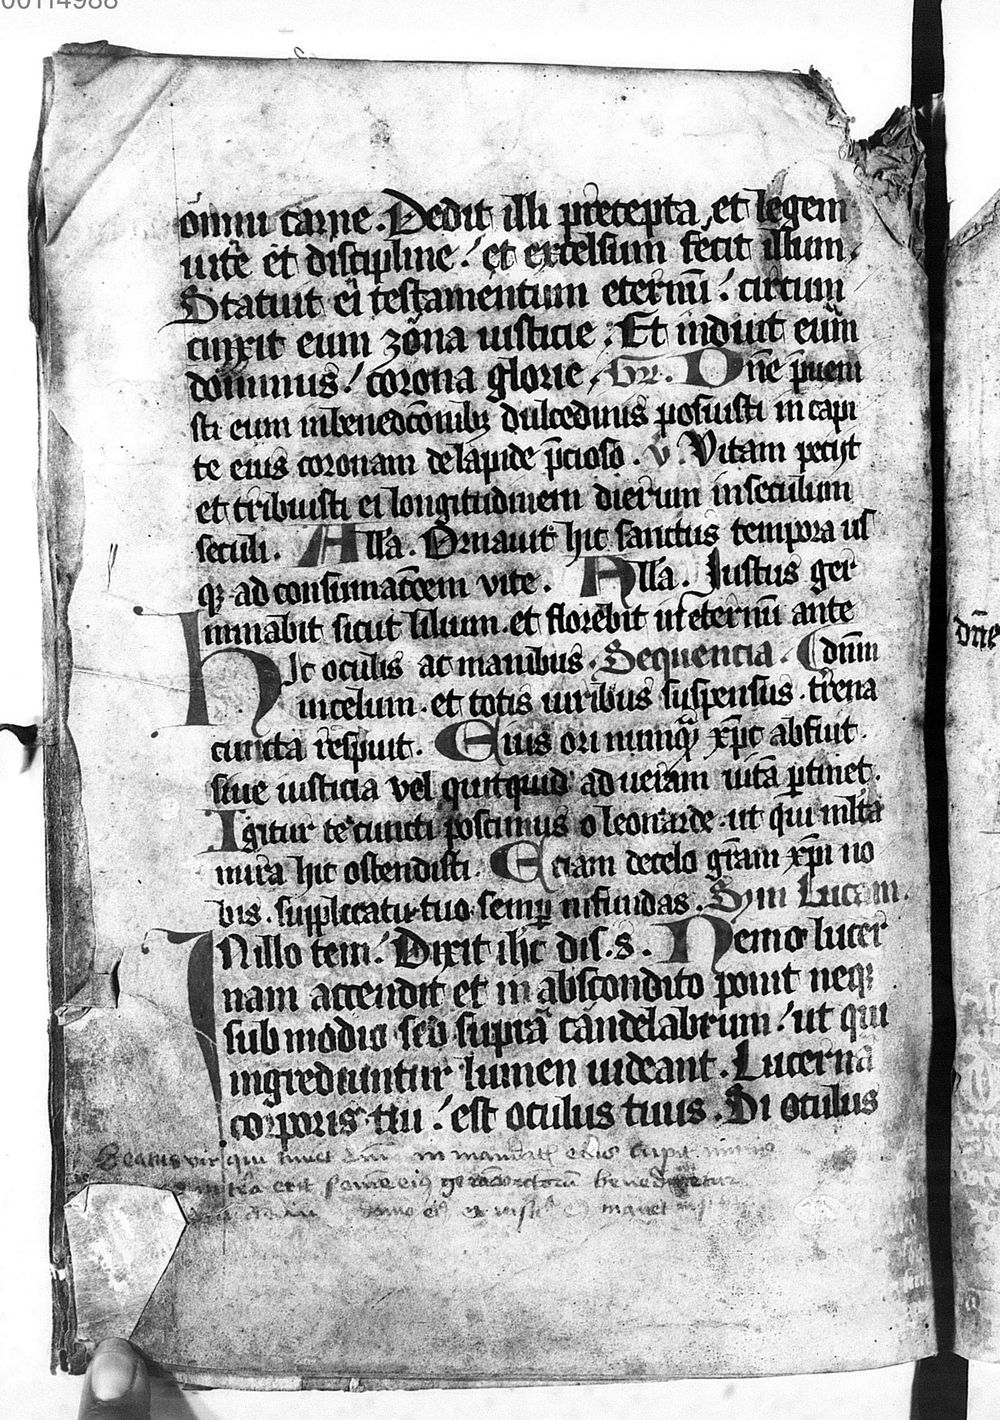 00114988
om̄ni carne. Dedit illi precepta, et legem
uite et discipline: et excelsum fecit illum.
Statuit ei testamentum eternū: circum
cinxit eum zona iusticie: Et induit eum
dominus: corona glorie. Gr̄. Dn̄e p̄ueni
sti eum in benedc̄onibꝫ dulcedinis posuisti in capi
te eius coronam de lapide p̄cioso. v̄. Vitam pecijt
et tribuisti ei longitudinem dierum in seculum
seculi. Alla. Ornauit hic sanctus tempora us
qꝫ ad consumac̄oem vite. Alla. Iustus ger
minabit sicut lilium. et florebit in eternū ante
Hic oculis ac manibus. Sequencia. dn̄m
in celum. et totis uiribus suspensus. t̄rena
cuncta respuit. Eius ori numqꝫ xp̄c abfuit.
siue iusticia vel quicquid ad ueram uitā ꝑtinet.
Igitur te cuncti poscimus o leonarde. ut qui ml̄ta
mira hic ostendisti. Eciam de celo gr̄am xp̄i no
bis. supplicatu tuo semꝑ infundas. Sm̄ Lucam.
IN illo tem̄. Dixit ih̄c dis. s. Nemo lucer
nam accendit et in abscondito ponit neqꝫ
sub modio sed supra candelabrum: ut qui
ingrediuntur lumen uideant. Lucerna
corporis tui: est oculus tuus. Si oculus
Beatus vir qui timet dn̄m in mandatꝭ eius cupit nimis
in t̄ra erit semē eiꝰ
dn̄e